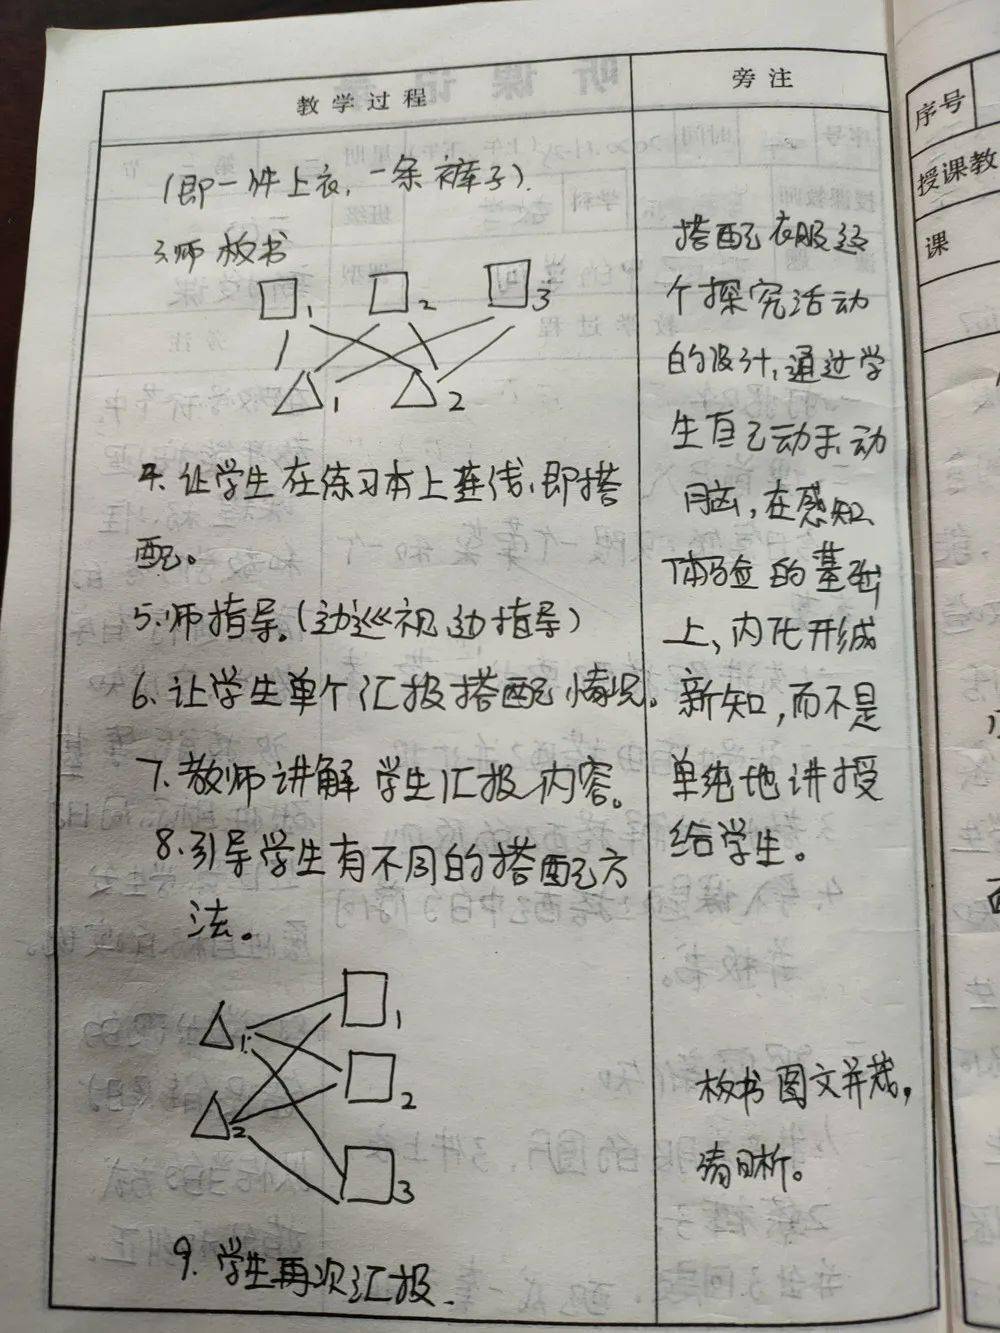 教学过程
(即一件上衣，一条裤子).
3.师板书
1 2 3
1 2
4.让学生在练习本上连线，即搭
配。
5.师指导。(边巡视边指导)
6.让学生单个汇报搭配情况。
7.教师讲解学生汇报内容。
8.引导学生有不同的搭配方
法。
1 1
2
2
3
9.学生再次汇报.
旁注
搭配衣服这
个探究活动
的设计，通过学
生自己动手，动
脑，在感知
体验的基础
上，内化形成
新知，而不是
单纯地讲授
给学生。
板书图文并茂，
清晰。
序号
授课教
课